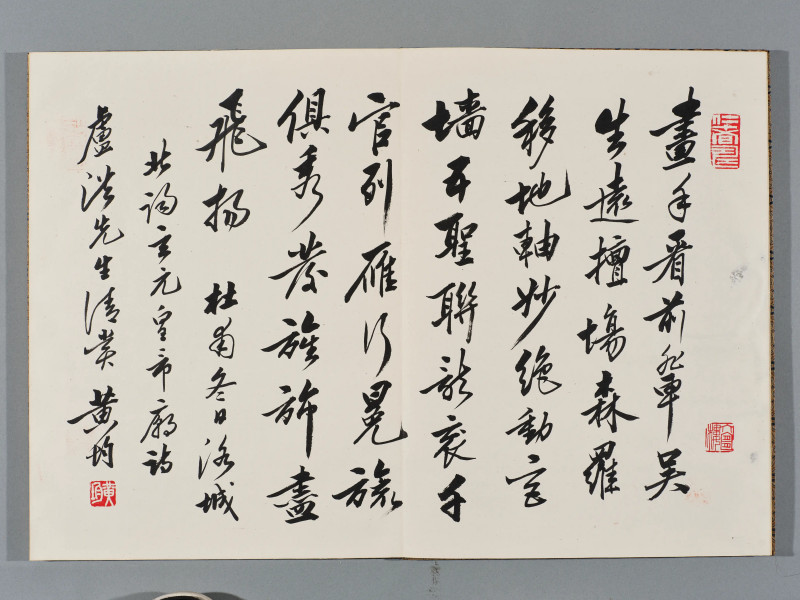 畫手看前輩吳
生遠擅場森羅
移地軸妙絕動宮
墻五聖聯龍袞千
官列雁行冕旒
俱秀發旌旆盡
飛揚 杜甫冬日洛城
北謁玄元皇帝廟詩
盧洪先生清賞 黃均